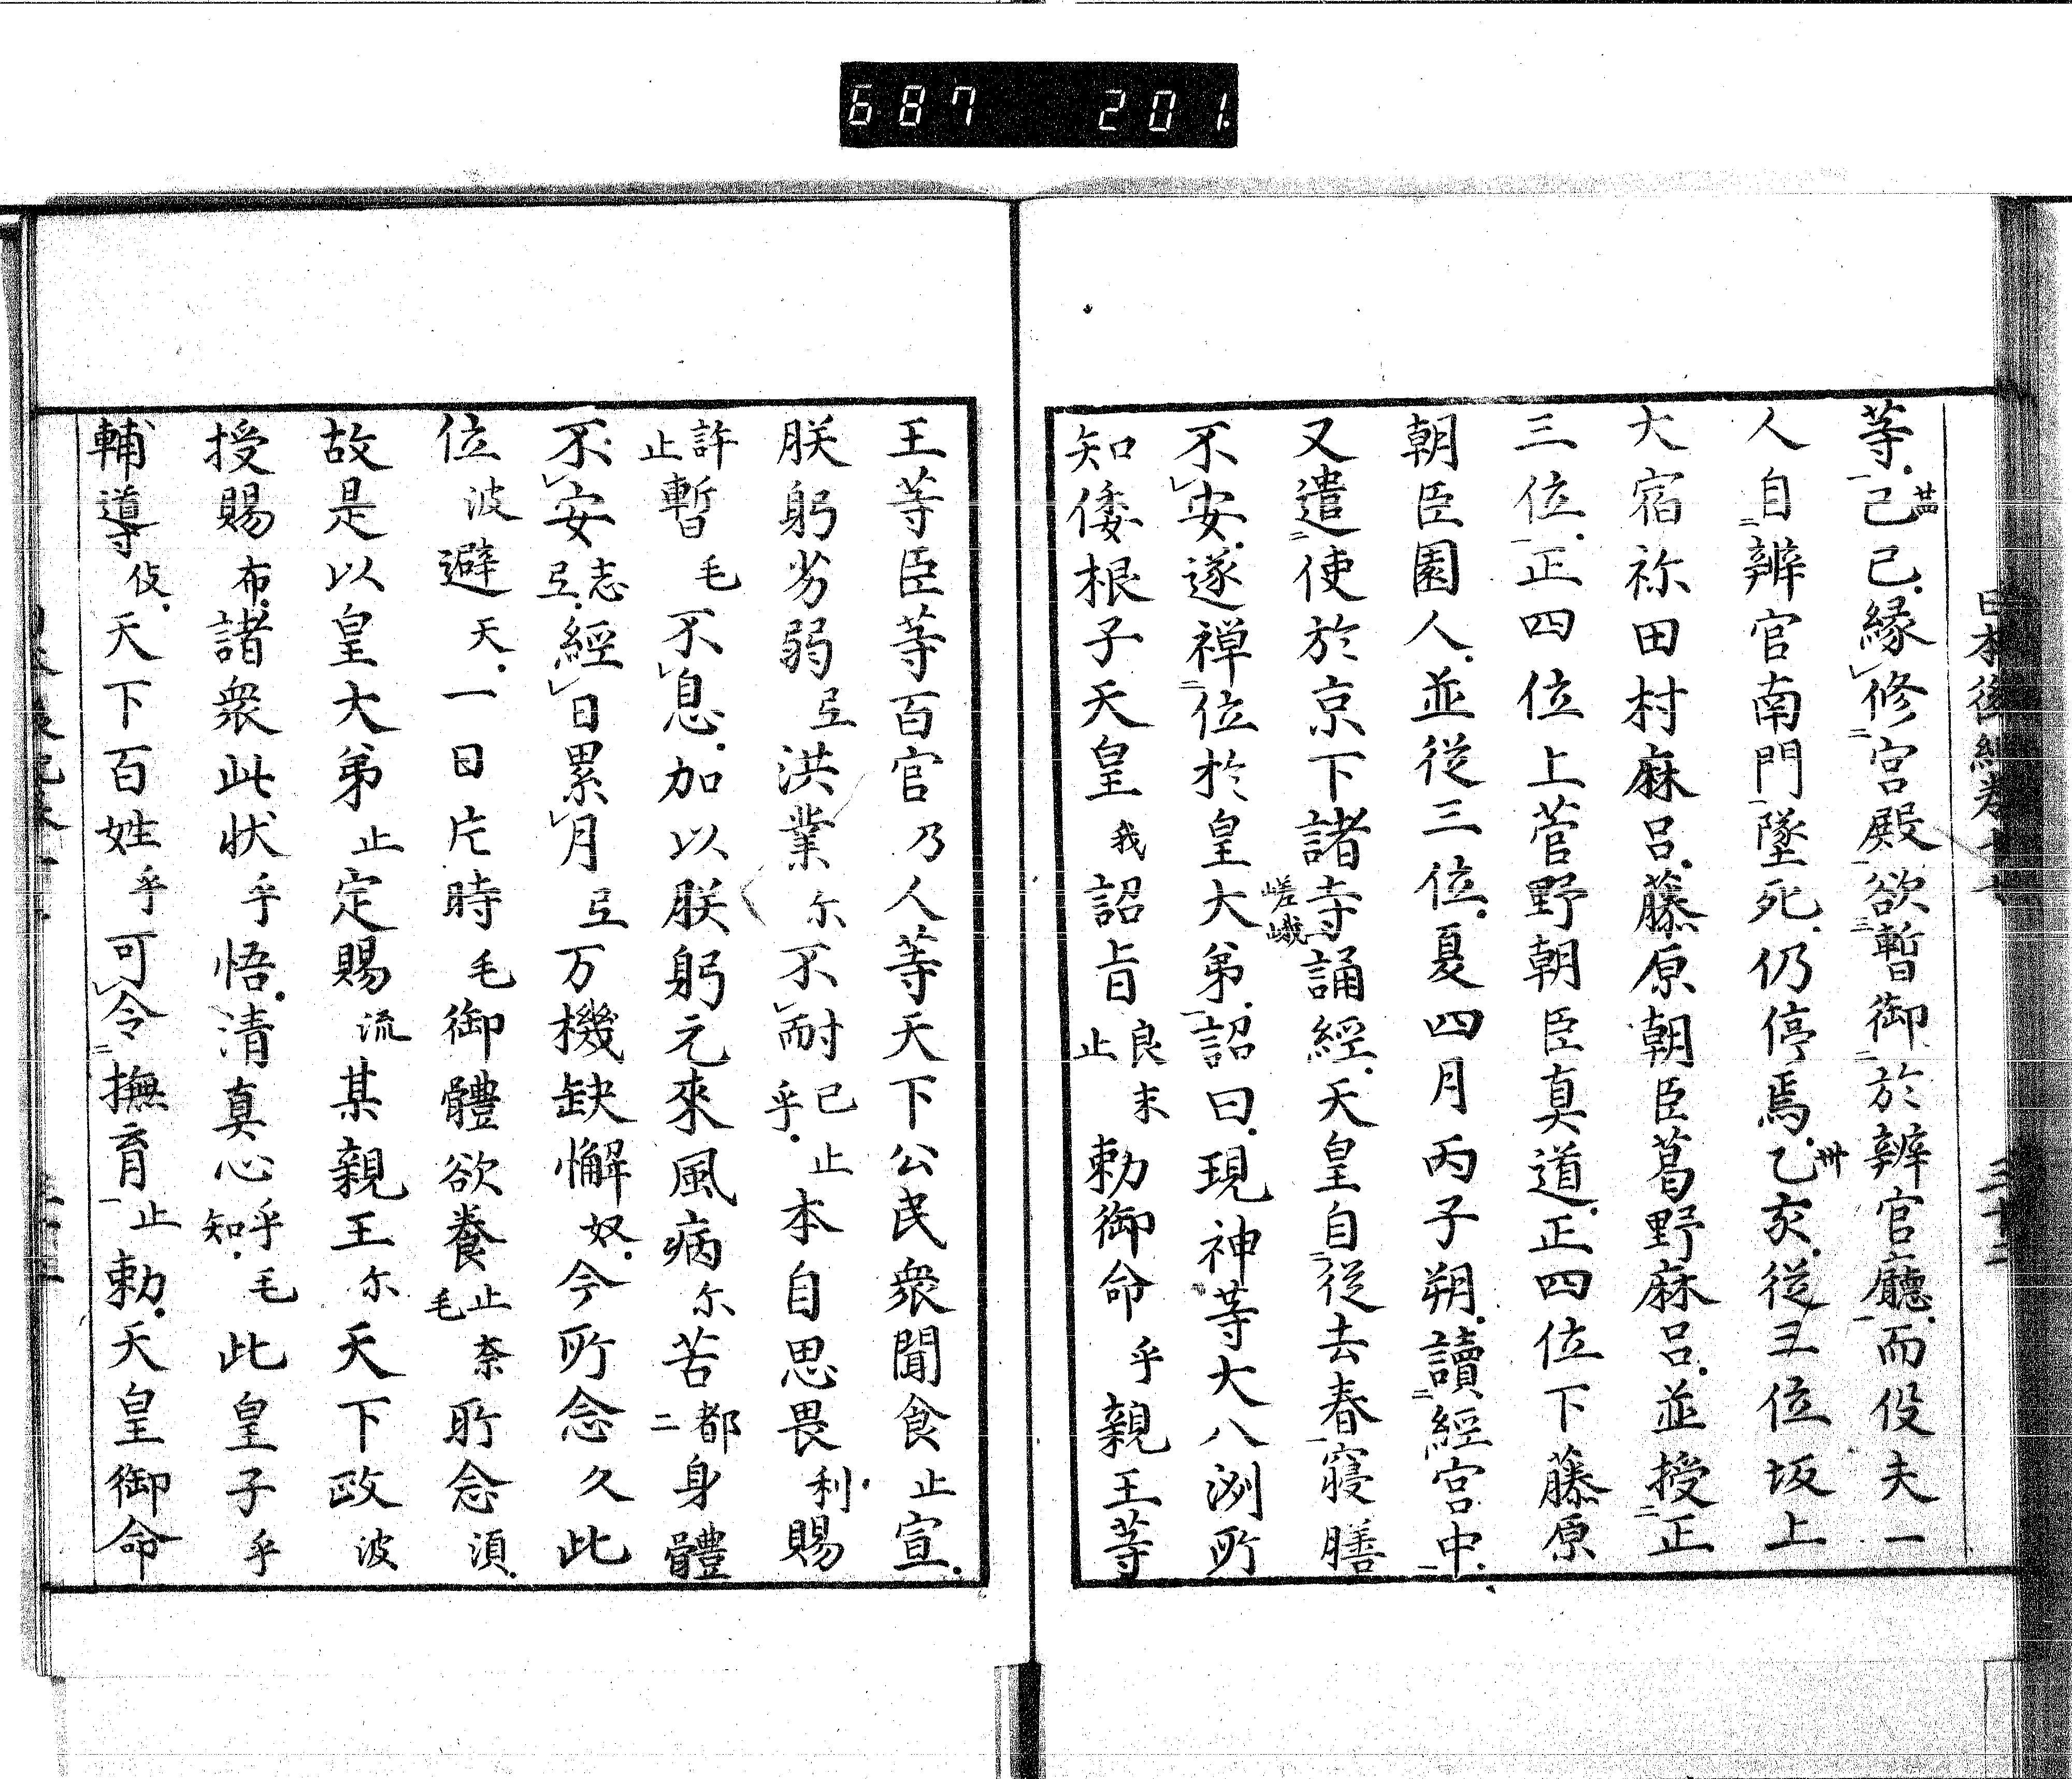 687 201.
日本後紀卷十七 三十二
等己巳緣修宮殿欲暫御於辨官廳而役夫一
人自辨官南門墜死仍停焉乙亥從五位坂上
大宿祢田村麻呂藤原朝臣葛野麻呂並授正
三位正四位上菅野朝臣真道正四位下藤原
朝臣園人並從三位夏四月丙子朔讀經宮中
又遣使於京下諸寺誦經天皇自從去春寢膳
嵯峨
不安遂禅位於皇大弟詔曰現神等大八洲所
知倭根子天皇我詔旨良末止勅御命乎親王等
王等臣等百官乃人等天下公民衆聞食止宣
朕躬劣弱弖洪業尓不耐己止乎本自思畏利賜
許止暫毛不息加以朕躬元來風病尓苦都二身體
不安志弖經日累月弖万機缺懈奴今所念久此
位波避天一日片時毛御體欲養止奈毛所念湏
故是以皇大弟止定賜流某親王尓天下政波
授賜布諸衆此状乎悟清真心乎毛知此皇子乎
輔導伎天下百姓乎可令撫育止勅天皇御命